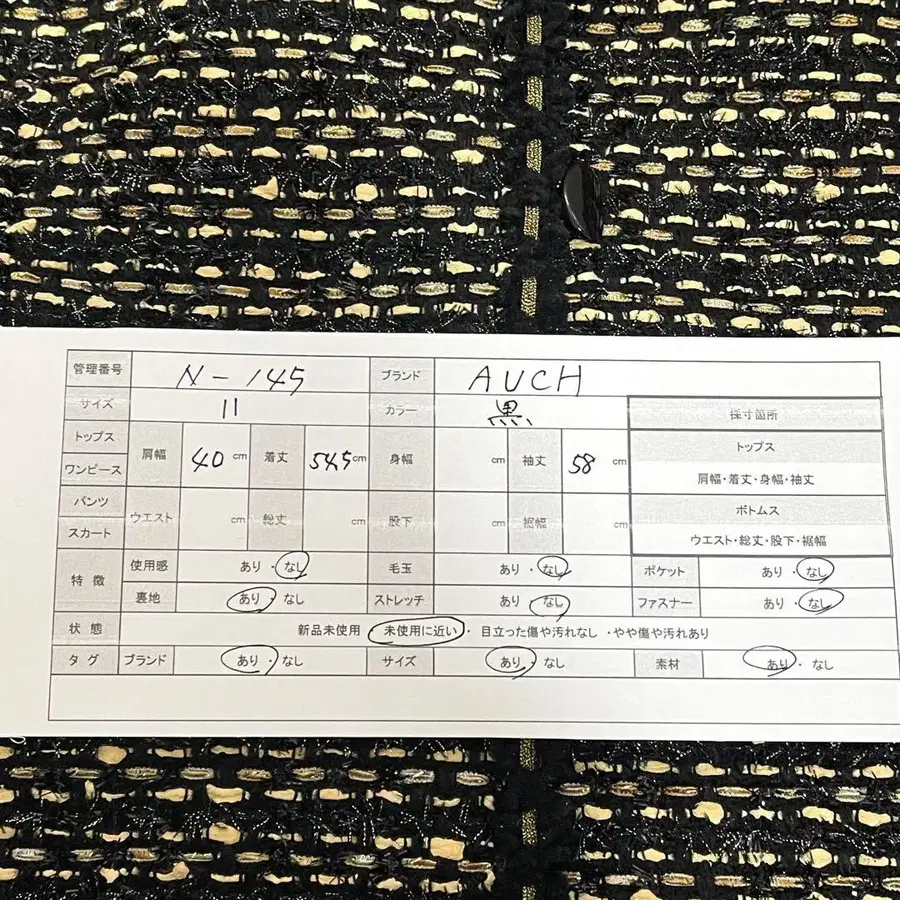 管理番号 N-145 ブランド AUCH
サイズ 11 カラー 黒 採寸箇所
トップス
ワンピース
肩幅 40 cm 着丈 54.5 cm 身幅 cm 袖丈 58 cm
トップス
肩幅・着丈・身幅・袖丈
パンツ
スカート
ウエスト cm 総丈 cm 股下 cm 裾幅 cm
ボトムス
ウエスト・総丈・股下・裾幅
特徴
使用感 あり・なし 毛玉 あり・なし ポケット あり・なし
裏地 あり・なし ストレッチ あり・なし ファスナー あり・なし
状態 新品未使用・未使用に近い・目立った傷や汚れなし・やや傷や汚れあり
タグ ブランド あり・なし サイズ あり・なし 素材 あり・なし